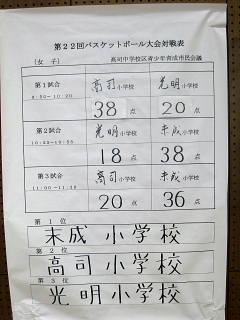 第22回バスケットボール大会対戦表
(女子) 高司中学校区青少年育成市民会議
第1試合 高司小学校 光明小学校
38点 20点
第2試合 光明小学校 末成小学校
18点 38点
第3試合 高司小学校 末成小学校
11:00~11:30
20点 36点
第1位
末成小学校
第2位
高司小学校
第3位
光明小学校